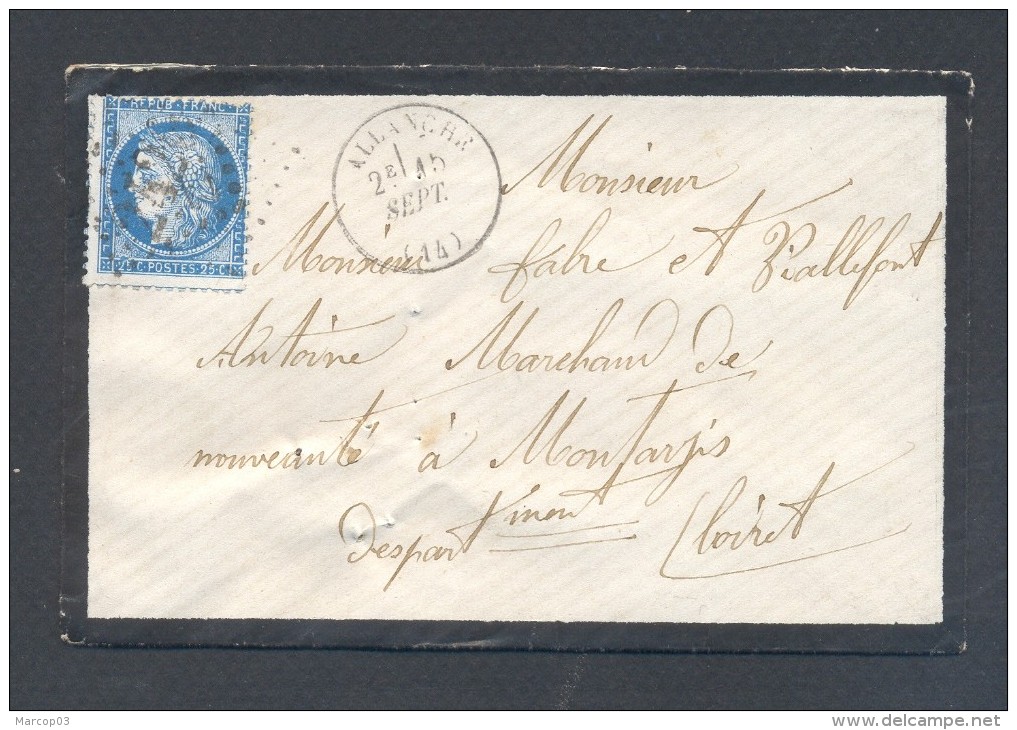 REPUB · FRANC
25 C · POSTES · 25 C
ALLANCHE
2E
15
SEPT.
(14)
Monsieur
Monsieur fabre et Viallefont
Antoine Marchand de
nouveauté à Montargis
despartiment Loiret
Marcop03
www.delcampe.net